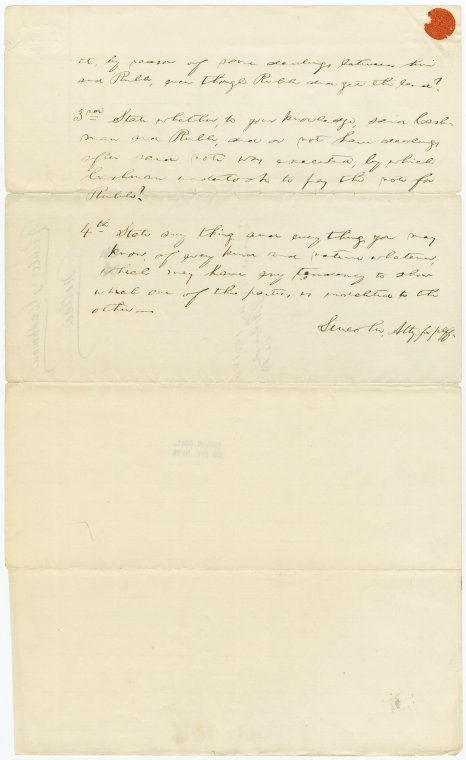 it, by reason of some dealings between him
and Rubb, even though Rubb did get the land?
3rd State whether, to your knowledge, said Cush-
man and Rubb, did or not have dealings
after said note was executed, by which
Cushman undertook to pay the note for
Rubb?
4th State any thing and everything you may
know, of every kind and nature whatever,
which may have any tendency to show
which one of the parties, is indebted to the
other—
Lincoln, Atty for plff-